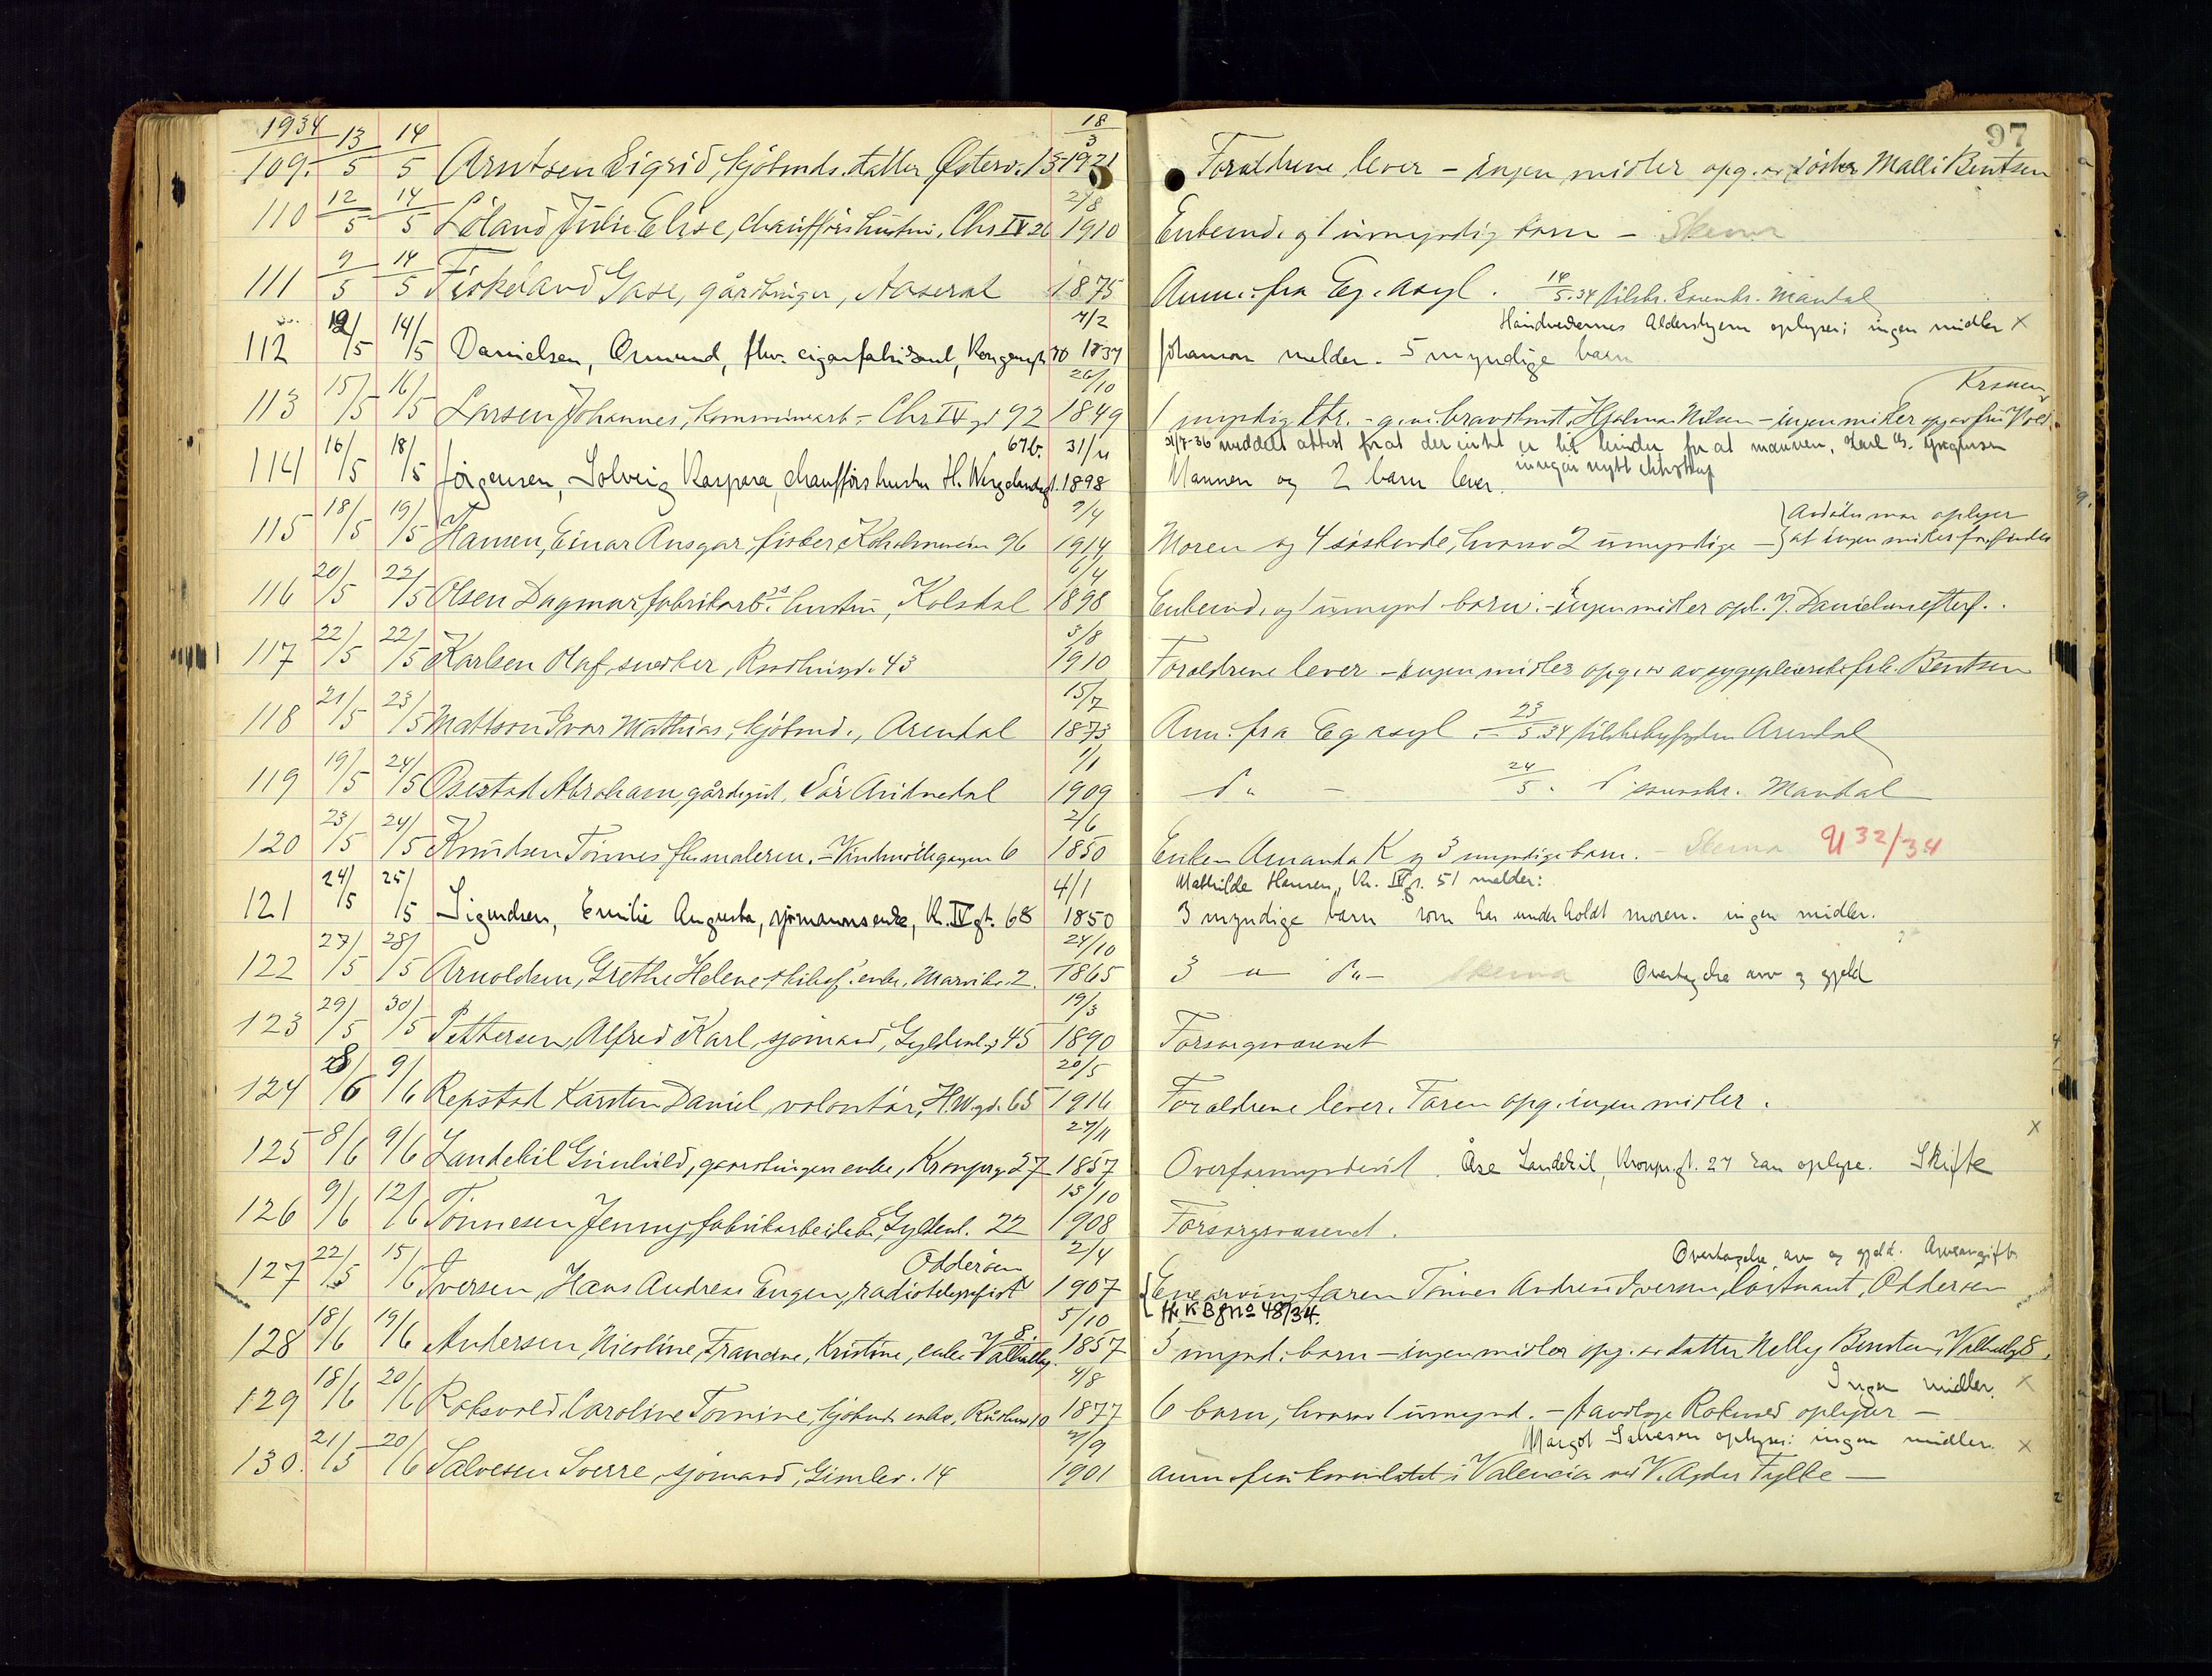 1934
97
109. 13/5 14/5 Arntsen Sigrid, kjöbmds. datter Österv. 13 18/3 1921 Foraldrene lever – ingen midler opg. av söster Malli Bentsen
110 12/5 14/5 Löland Julie Elise, chaufförshustru, Chr IV 26 2/8 1910 Enkemd. og 1 umyndig barn – Skema
111 9/5 14/5 Fiskeland Gase, gårdbruger, Aaseral 1875 Anm. fra Eg. asyl. 14/5.34 tilskr. Sorenskr. Mandal
Håndverkernes Aldershjem oplyser; ingen midler X
112 12/5 14/5 Danielsen, Ormund, fhv. cigarfabrikant, Kongensgt 30 4/2 1837 Johanson melder. 5 myndige barn
113 15/5 16/5 Larsen Johannes, kommunearb. – Chr IV gt 92 26/10 1849 1 myndig dtr. – g.m. Hjalmar Nilsen – ingen midler opg av fru
31/7-36 meddelt attest for at der intet er til hinder for at mannen, Karl G. Jörgensen
inngår nytt ekteskap
114 16/5 18/5 Jörgensen, Solveig Kaspara, chaufförshustru H. Wergelandsgt. 67b. 31/11 1898 Mannen og 2 barn lever.
115 18/5 19/5 Hansen, Einar Ansgar, fisker, Kolholmveien 96 9/4 1914 Moren og 4 söskende, hvorav 2 umyndige – Avdödes mor oplyser at ingen midler forefindes
116 20/5 22/5 Olsen Dagmar, fabrikarb.s hustru, Kolsdal 6/4 1898 Enkemd. og 1 umynd. barn. – ingen midler opl. J. Danielsen efterf.
117 22/5 22/5 Karlsen Olaf, snedker, 43 3/8 1910 Foraldrene lever – ingen midler opg. av sygepleierske frk. Bentsen
118 21/5 23/5 Mattson Ivar Mathias, kjöbmd., Arendal 15/7 1873 Anm. fra Eg asyl. – 23/5.34 tilskr. byfogden Arendal
119 19/5 24/5 Osestad Abraham, gårdsgut, Sör Audnedal 1/1 1909 do – 24/5. do sorenskr. Mandal
120 23/5 24/5 Knudsen Tönnes fhv malerm. – Vindmöllegangen 6 2/6 1850 Enken Amanda K og 3 myndige barn. – Skema U 32/34
Mathilde Hansen, Kr. IV gt. 51 melder:
121 24/5 25/5 Sigurdsen, Emilie Augusta, sjömannsenke, Kr. IV gt. 68 4/1 1850 3 myndige barn som har underholdt moren. ingen midler.
122 27/5 28/5 Arnoldsen, Grethe Helene skibsf. enke, Marviksv. 2. 24/10 1865 3 – " – do – Skema Overtagelse arv og gjeld
123 29/5 30/5 Pettersen, Alfred Karl, sjömand, Gyldenl. gt 45 19/3 1890 Forsorgsvasenet
124 8/6 9/6 Repstad Karsten Daniel, volontär, H.W. gt. 65 20/5 1916 Foraldrene lever. Faren opg. ingen midler.
125 8/6 9/6 Landekil Gunhild, gaardbrugerenke, Kronprg 27 27/11 1857 Overformynderiet. Åse Landekil, Kronpr. gt. 27 kan oplyse. Skifte X
126 9/6 12/6 Tönnesen Jenny, fabrikarbeiderske, Gyldenl. 22 13/10 1908 Forsorgsvasenet.
Overtagelse arv og gjeld. Arveavgift
127 22/5 15/6 Iversen, Hans Andreas Eugen, radiotelegrafist Odderöen 2/4 1907 Enearving faren Tönnes Andreas Iversen, löitnant, Odderöen
H. K B g No 48/34.
128 18/6 19/6 Andersen, Nicoline, Francine, Kristine, enke Valhallg. 8. 5/10 1857 3 mynd. barn – ingen midler opg. av datter Nelly Bentsen, Valhallg 8.
Ingen midler. X
129 18/6 20/6 Roksvold Caroline Tomine, kjöbmds enke, Rådhusg 10 4/8 1877 6 barn, hvorav 1 umynd. – Roksvold oplyser –
Margot Salvesen oplyser: ingen midler. X
130. 21/5 20/6 Salvesen Sverre, sjömand, Gimlev. 14 7/9 1901 anm. fra konsulatet i Valencia ved V. Agder Fylke –